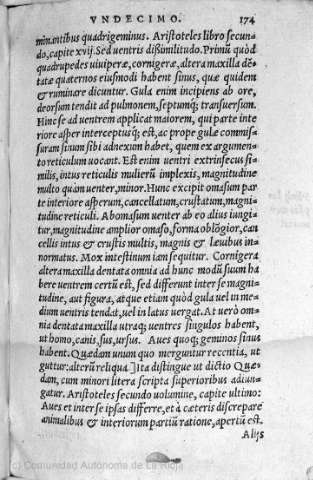 VNDECIMO. 174
minantibus quadrigeminus. Aristoteles libro secun-
do, capite xvij. Sed uentris dissimilitudo. Primũ quòd
quadrupedes uiuiperæ, cornigeræ, altera maxilla dẽ-
tatæ quaternos eiusmodi habent sinus, quæ quidem
& ruminare dicuntur. Gula enim incipiens ab ore,
deorsum tendit ad pulmonem, septumq; transuersum.
Hinc se ad uentrem applicat maiorem, qui parte inte
riore asper interceptusq; est, ac prope gulæ commis-
suram sinum sibi adnexum habet, quem ex argumen-
to reticulum uocant. Est enim uentri extrinsecus si-
milis, intus reticulis mulierũ implexis, magnitudine
multo quàm uenter, minor. Hunc excipit omasum par
te interiore asperum, cancellatum, crustatum, magni-
tudine reticuli. Abomasum uenter ab eo alius iungi-
tur, magnitudine ampliore omaso, forma oblõgior, can-
cellis intus & crustis multis, magnis & læuibus in-
normatus. Mox intestinum iam sequitur. Cornigera
altera maxilla dentata omnia ad hunc modũ suum ha
bere uentrem certũ est, sed differunt inter se magni-
tudine, aut figura, atque etiam quòd gula uel in me-
dium uentris tendat, uel in latus uergat. At uerò om-
nia dentata maxilla utraq; uentres singulos habent,
ut homo, canis, sus, ursus. Aues quoq; geminos sinus
habent. Quædam unum quo merguntur recentia, ut
guttur: alterũ reliqua] Ita distingue ut dictio Quæ-
dam, cum minori litera scripta superioribus adiun-
gatur. Aristoteles secundo uolumine, capite ultimo:
Aues et inter se ipsas differre, et à cæteris discrepare
animalibus & interiorum partiũ ratione, apertũ est.
Alijs
(c) Comunidad Autónoma de La Rioja